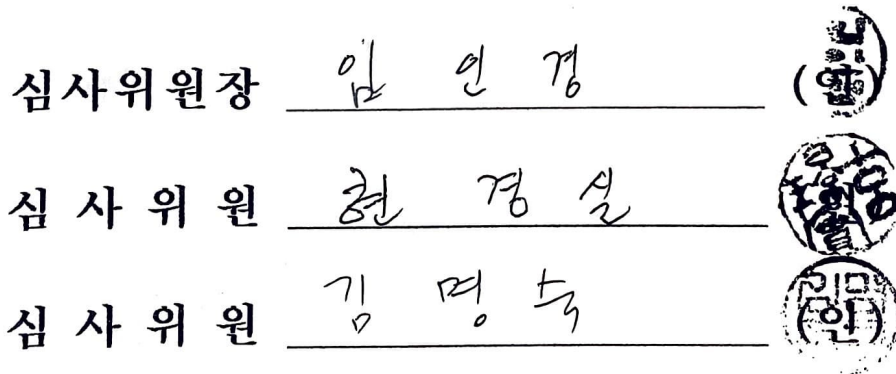 심사위원장 임 인 경 (인)
심 사 위 원 현 경 실
심 사 위 원 김 명 숙 (인)